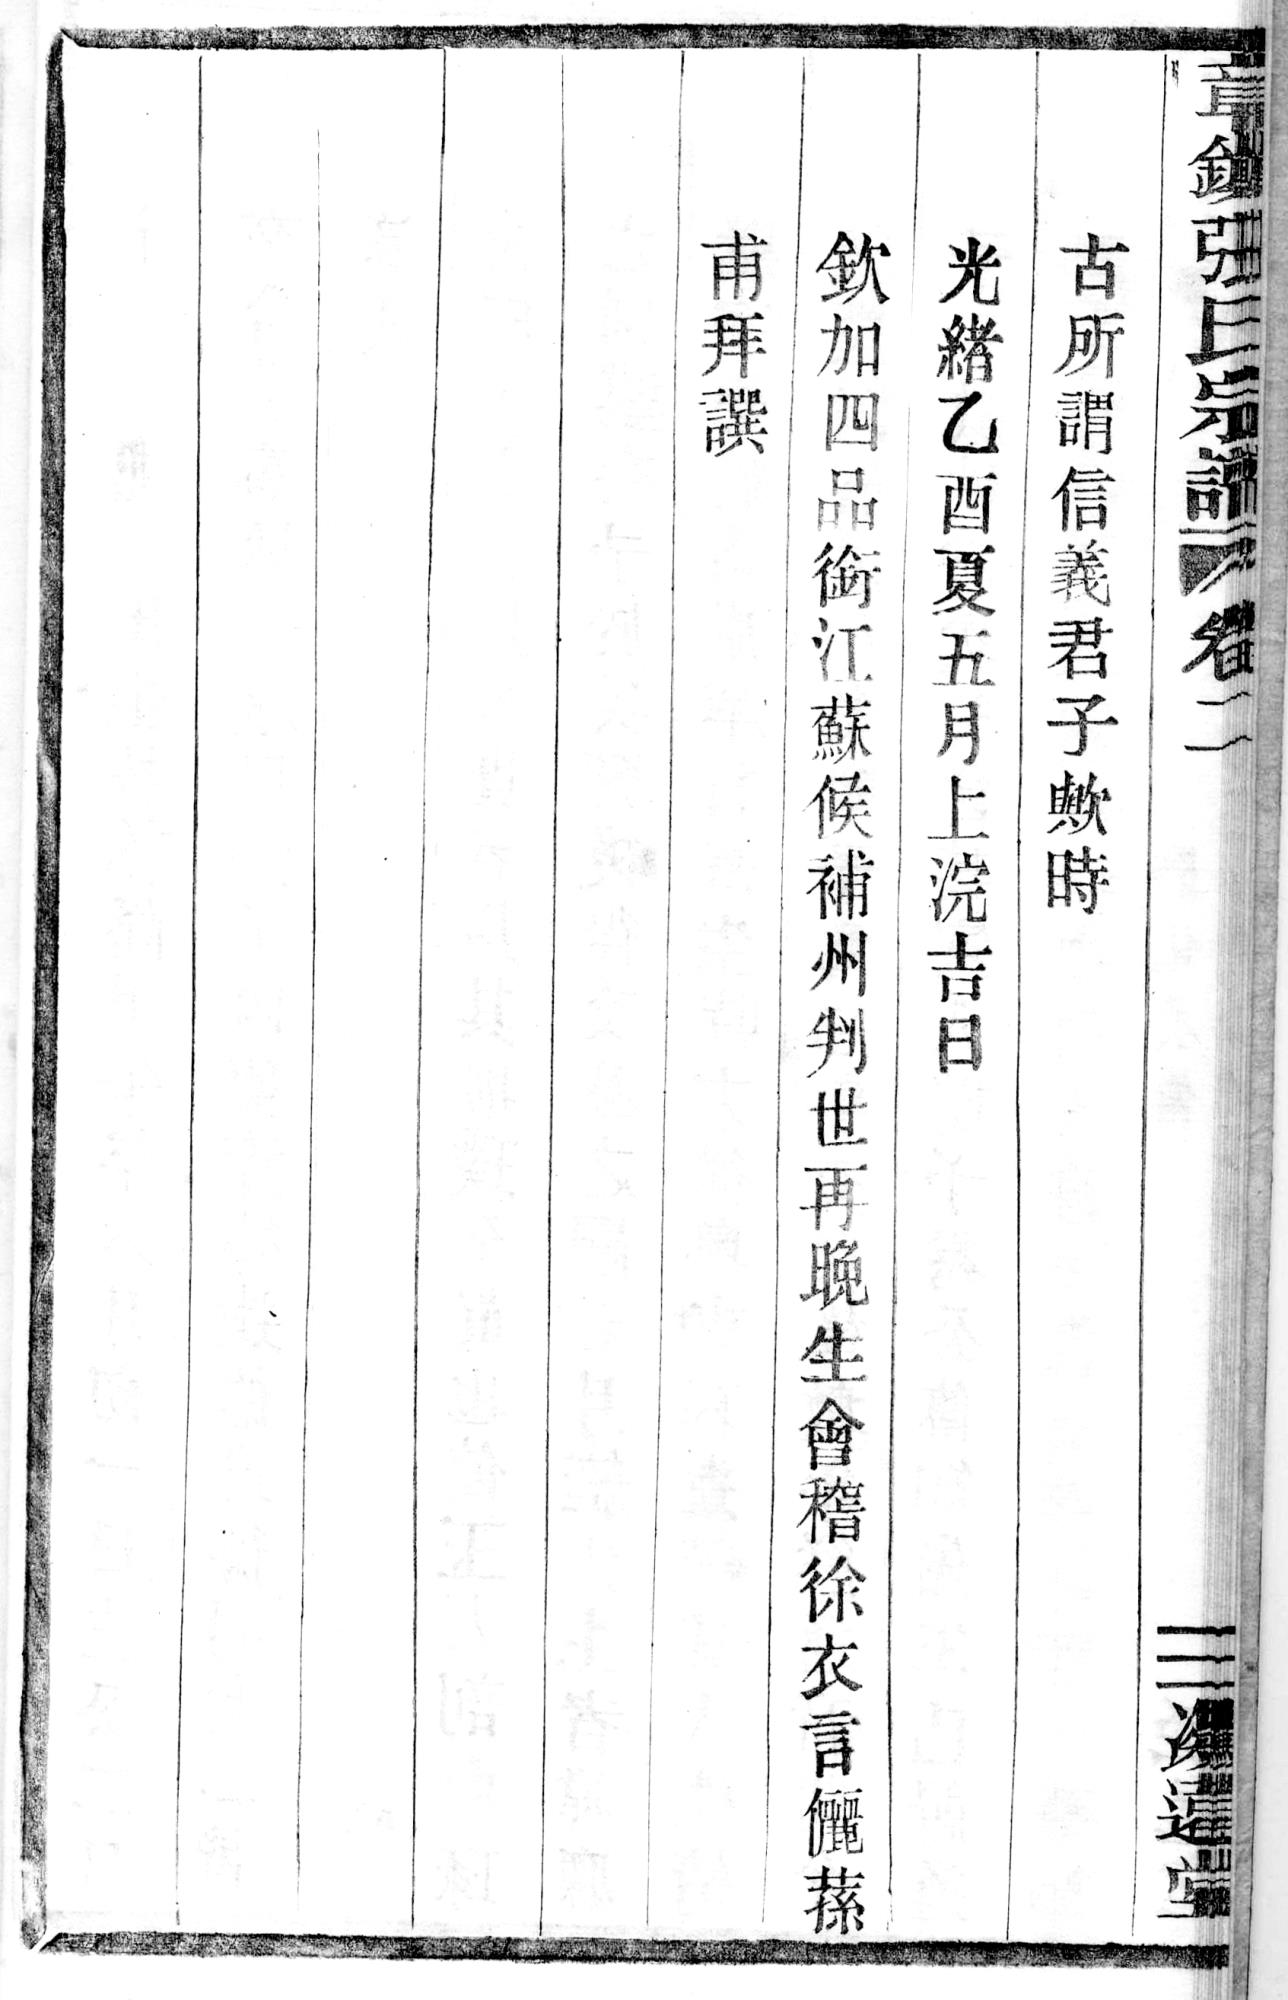 古所謂信義君子歟時
光緒乙酉夏五月上浣吉日
欽加四品銜江蘇候補州判世再晚生會稽徐衣言儷蓀
甫拜譔
張氏宗譜
卷二
三